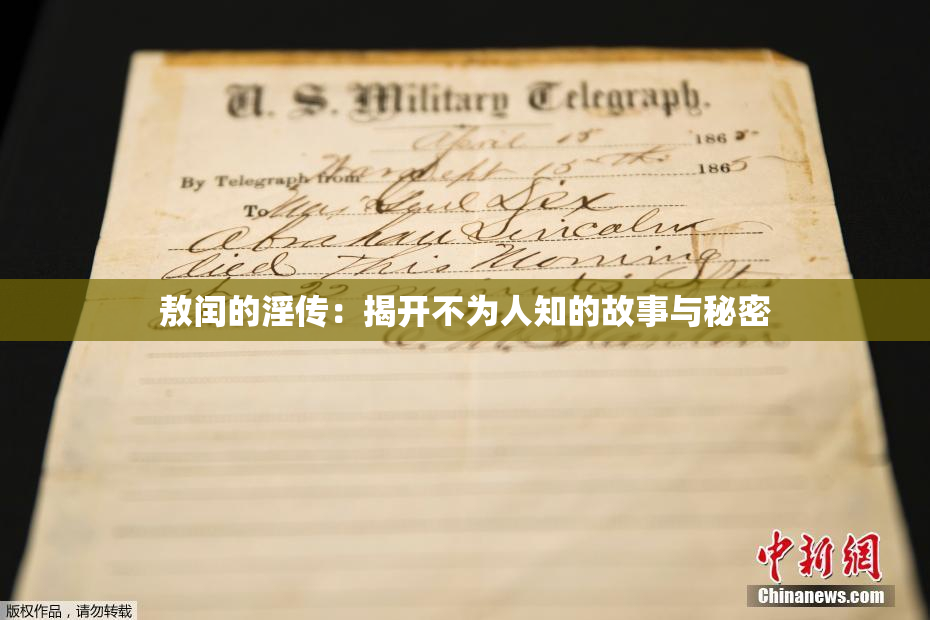 U. S. Military Telegraph.
April 15 1865
By Telegraph from War Dept 15th 1865
To Maj Genl Dix
Abraham Lincoln
died This Morning
敖闰的淫传：揭开不为人知的故事与秘密
22 minutes after
E. M. Stanton
中新网
Chinanews.com
版权作品，请勿转载